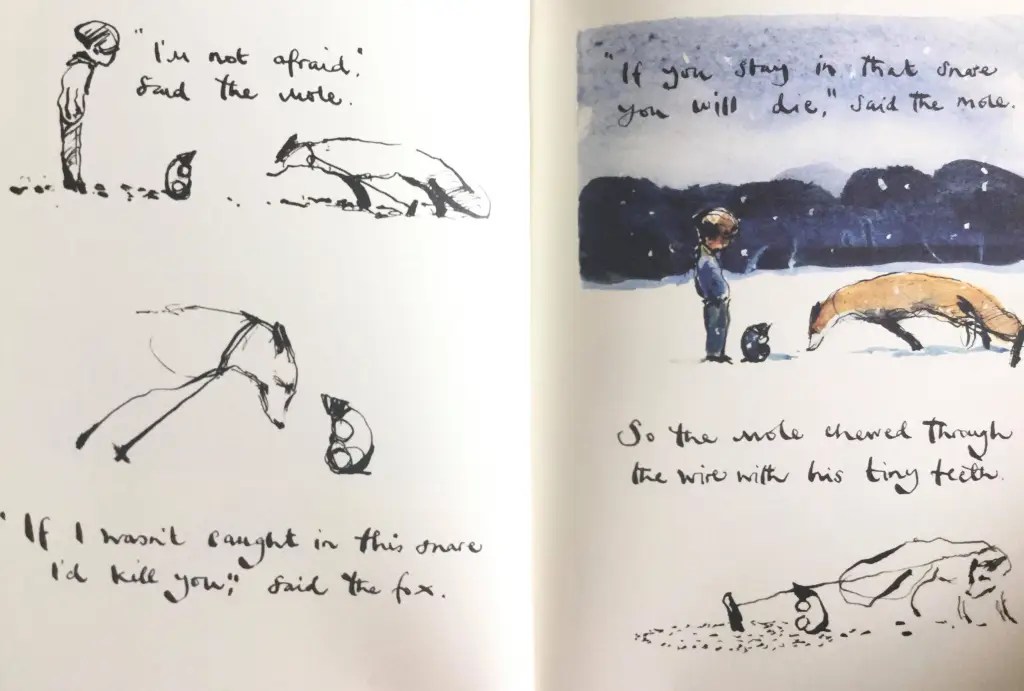 "I'm not afraid,"
said the mole.
"If I wasn't caught in this snare
I'd kill you," said the fox.
"If you stay in that snare
you will die," said the mole.
So the mole chewed through
the wire with his tiny teeth.